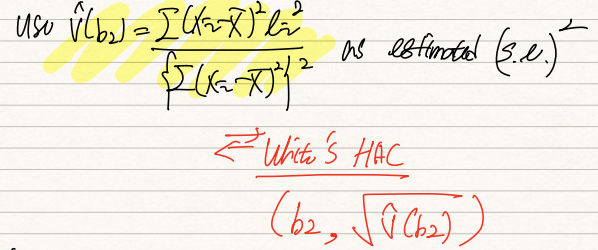 use V̂(b2) = Σ(xi-x̄)² ei² / {Σ(xi-x̄)²}² as estimated (s.e.)²
⇄ White's HAC
(b2, √V̂(b2))